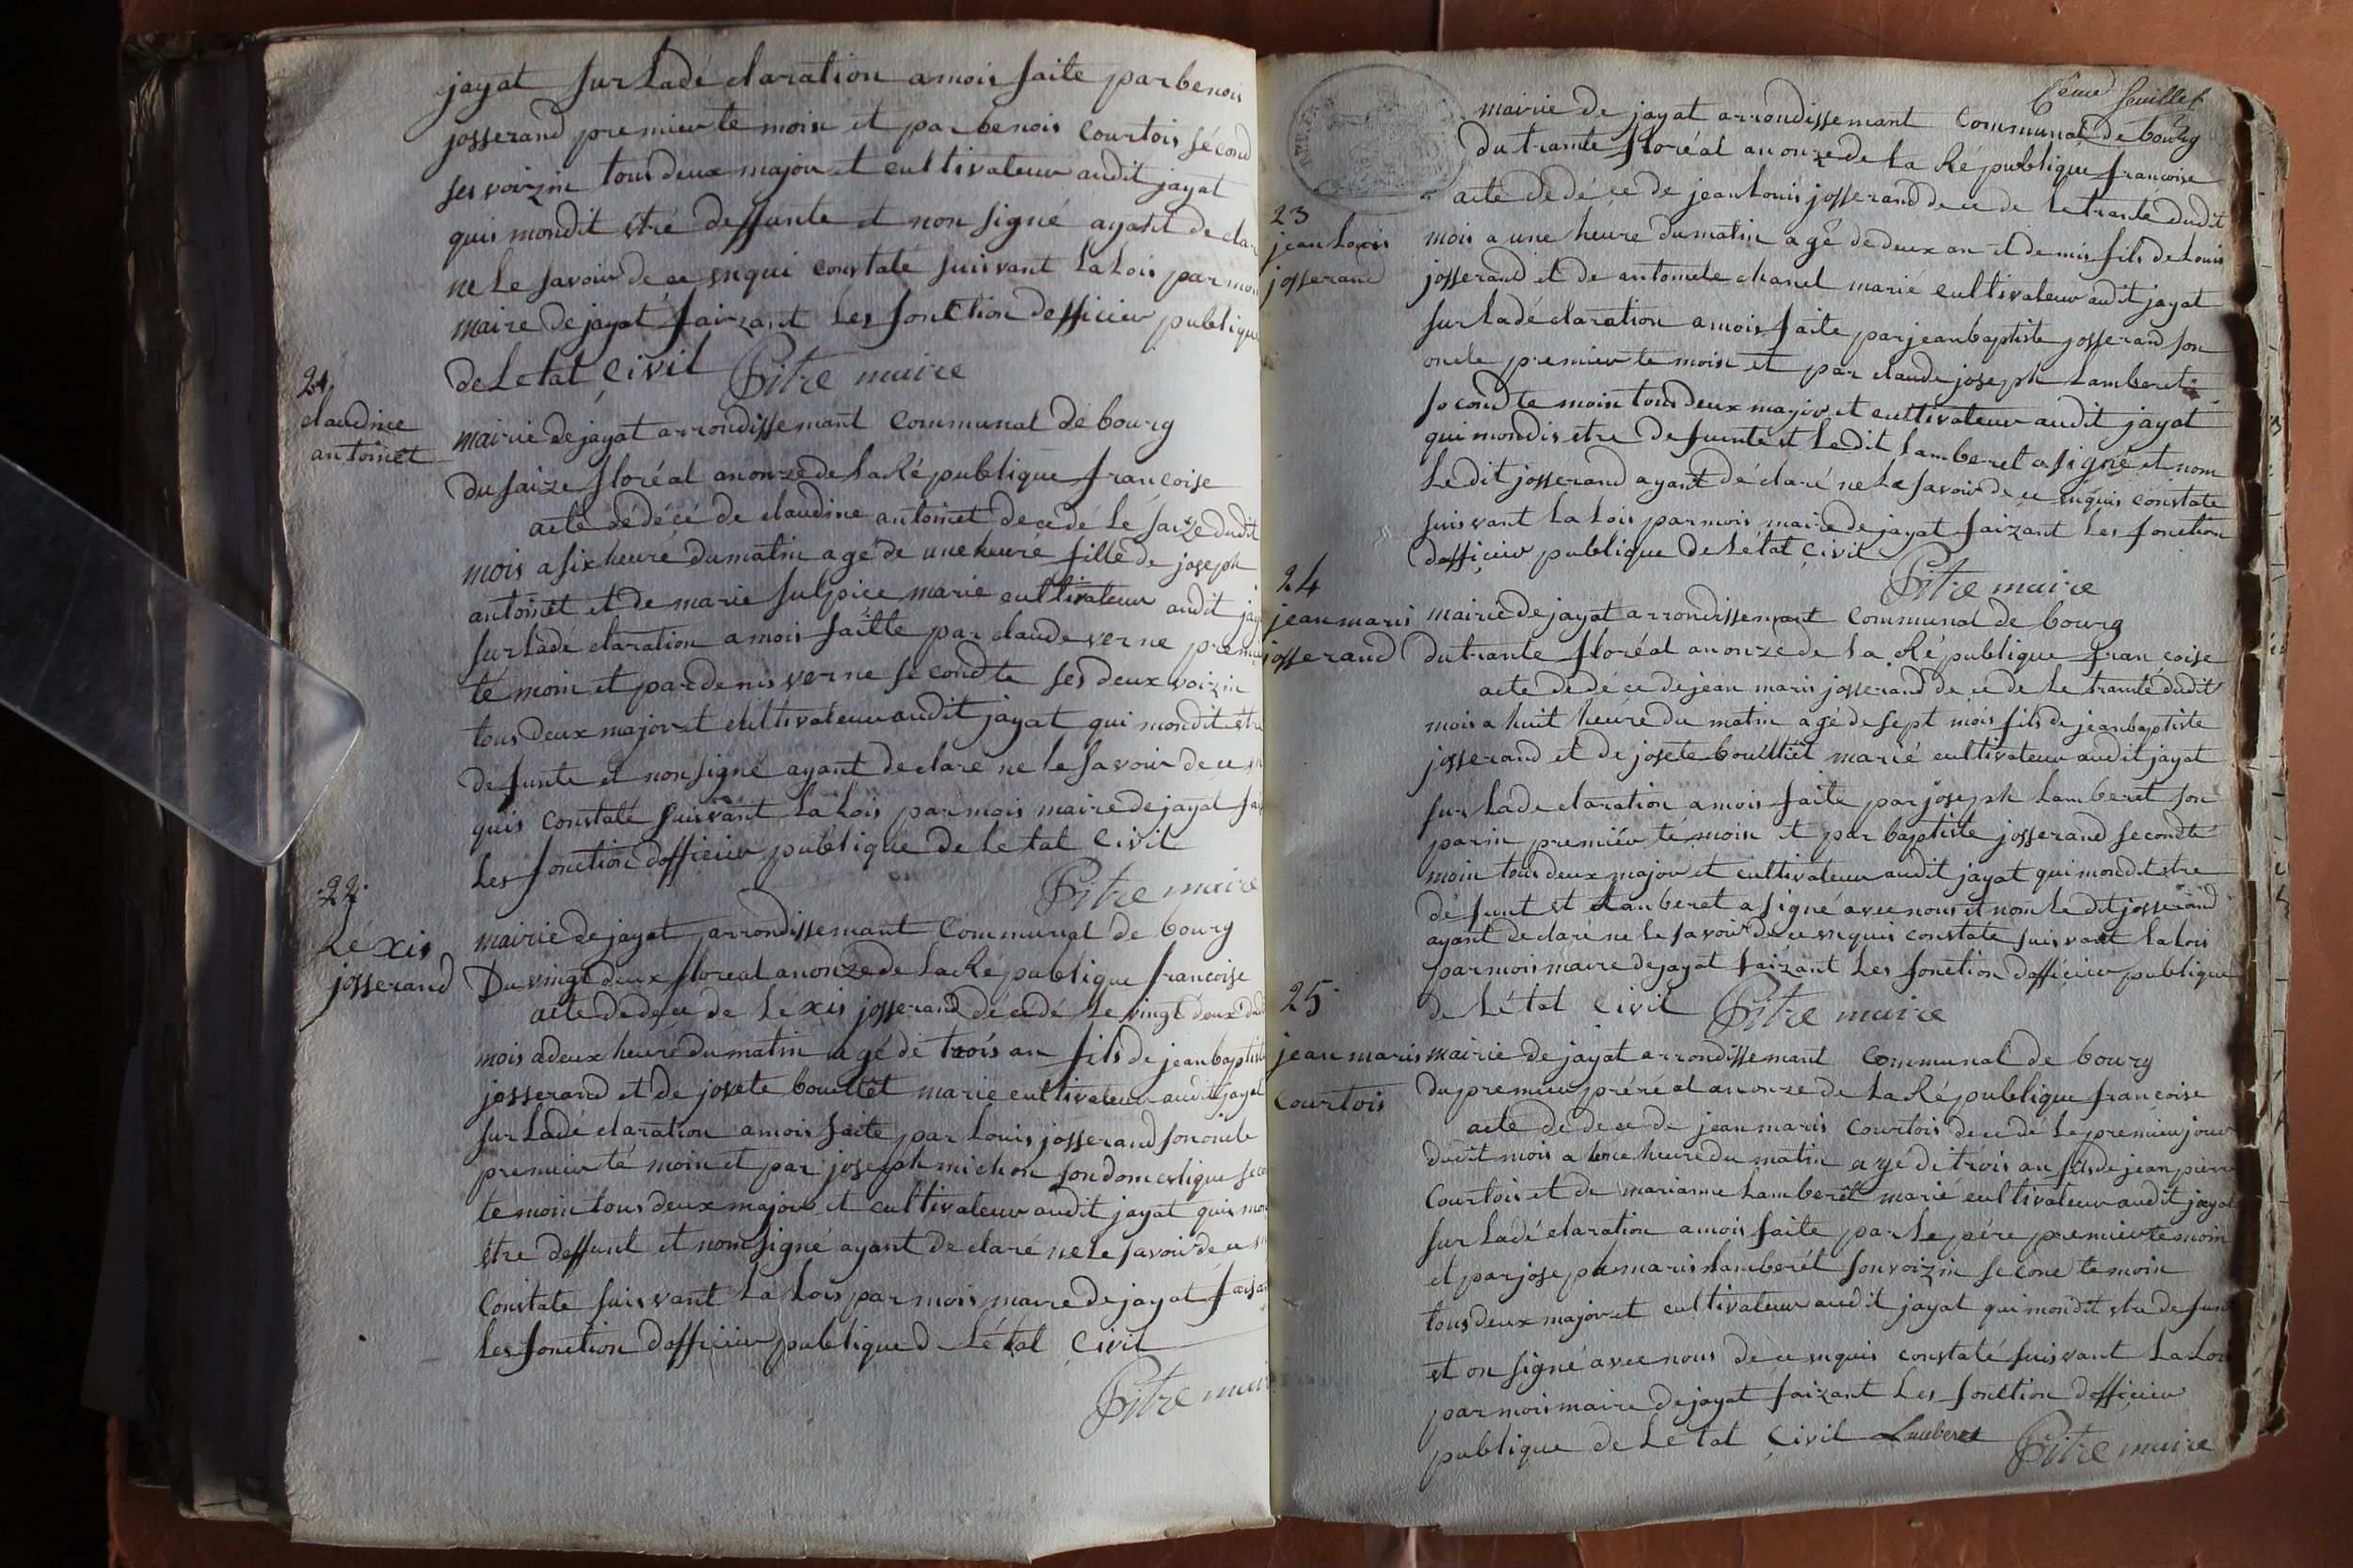 jayat sur la dé claration a moi faite par benoi
josserand premieu te moin et par benois Courtois sécond
ses voizin tous deux major et cultivateur audit jayat
qui mondit étré deffunte et non signé ayant de cla
ne le savoir de ce enqui constaté suisvant la Lois par moi
maire de jayat faizant les fonction defficieu publique
de Letat Çivil Pitre maire
21
claudine
antoinet
mairie de jayat arrondissemant Communal de bourg
du saize floréal an onze de la République francoise
acte dé décé de claudine antoinet decedé le saize dudit
mois a six heuré du matin agé de une heuré fille de joseph
antoinet et de marie sulpice marié cultivateur audit jay
sur la de claration a mois faitte par claude verne premieu
té moin et par denis verne se cond te ses deux voizin
tous deux major et cultivateur audit jayat qui mondit étre
defunte et non signé ayant declaré ne le savoir de ce en
quis constaté suisvant la Lois par mois maire de jayat fai
Les fonction dofficieu publique de Letat Civil
Pitre maire
22
Léxis
josserand
mairie de jayat arrondissemant Communal de bourg
Du vingt deux floreal an onze de la République francoise
acte de dece de Léxis josserand décedé le vingt deux dud
mois a deux heuré du matin agé de trois an fils de jean baptist
josserand et de josete bouillet marié cultivateur audit jayat
sur la dé claration a mois faite par Louis josserand son oncle
premieu té moin et par joseph michon son domestique seco
te moin tous deux major et cultivateur audit jayat quis mon
étre deffunt et non signé ayant de claré ne le savoir de ce en
Constate suisvant la Lois par mois maire de jayat faisa
Les fonction dofficieu publique d Létal Çivil
Pitre mair
6eme feuillet
mairie de jayat arrondissemant Communal de bourg
du trante floréal an onze de la République francoise
23
jean Louis
josserand
acte de dé ce de jean Louis josserand de ce de le trante dudit
mois a une heure du matin agé de deux an et demis fils de Louis
josserand et de antoinete chanel marié cultivateur audit jayat
sur la dé claration a mois faite par jean baptiste josserand son
oncle premieu te moin et par claude joseph Lamberet
se cond te moin tous deux major et cultivateur audit jayat
qui mondis etre defunte et Ledit Lamberet a signé et nom
Le dit josserand ayant dé claré ne Le savoir de ce enquis constate
suisvant la Lois par mois maire de jayat faizant Les fonction
dofficieu publique de Létat Çivil
Pitre maire
24
jean maris
josserand
mairie de jayat arrondissemant Communal de bourg
du trante floréal an onze de la République francoise
acte de dé ce de jean maris josserand de ce de Le tranté dudit
mois a huit heuré du matin agé de sept mois fils de jean baptiste
josserand et de josete bouillet marié cultivateur audit jayat
sur la de claration a mois faite par joseph Lamberet son
parin premiéu té moin et par baptiste josserand secondte
moin tous deux major et cultivateur audit jayat qui mondit etre
dé funt et Lamberet a signé avec nous et nom le dit josserand
ayant declaré ne le savoir de ce enquis constate suisvant la Lois
par mois maire de jayat faizant Les fonction dofficieu publique
de Létat Civil Pitre maire
25
jean maris
Courtois
mairie de jayat arrondissemant Communal de bourg
du premieu préréal an onze de la République francoise
acte de de ce de jean maris Courtois de ce dé Le premieu jour
dudit mois a heure du matin agé de trois an fils de jean pierre
Courtois et de marianne Lamberét marié cultivateur audit jayat
sur la dé claration a mois faite par le pére premieu temoin
et par joseph maris Lamberét son voizin second te moin
tous deux major et cultivateur audit jayat qui mondit etre defunt
et on signé avec nous de ce enquis constaté suisvant La Lois
par mois maire de jayat faizant Les fonction dofficieu
publique de Letat Çivil Lamberet Pitre maire